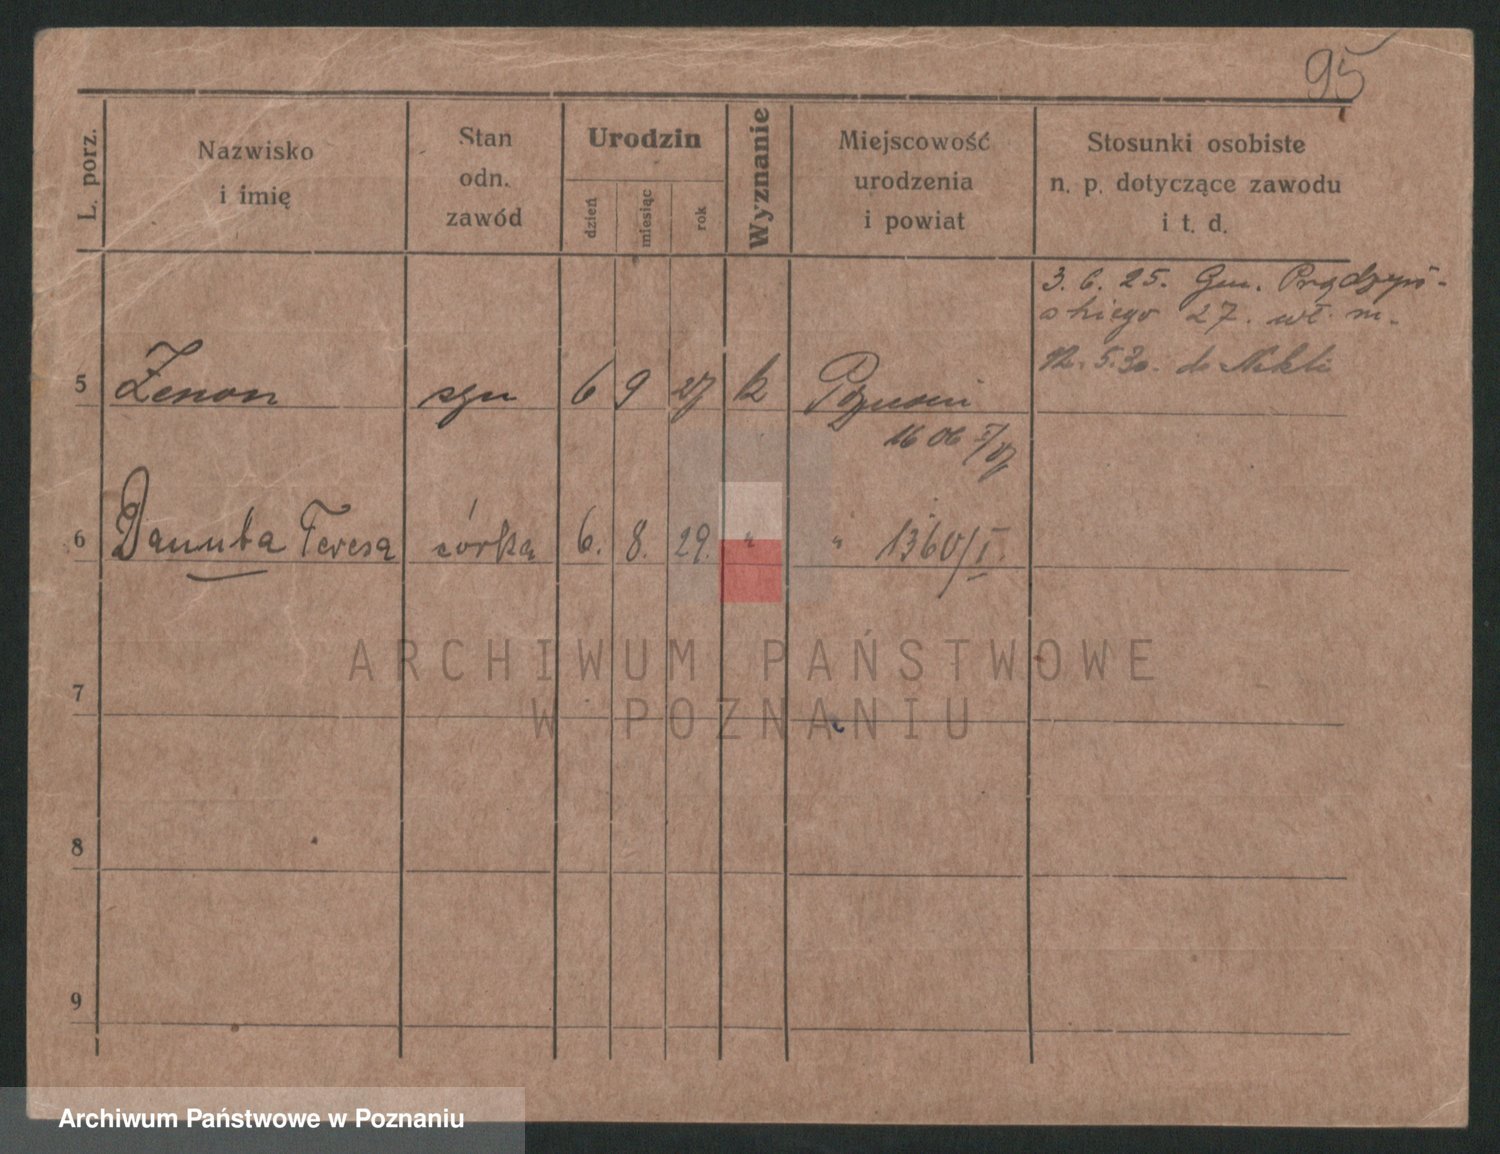 95
L. porz.
Nazwisko
i imię
Stan
odn.
zawód
Urodzin
dzień
miesiąc
rok
Wyznanie
Miejscowość
urodzenia
i powiat
Stosunki osobiste
n. p. dotyczące zawodu
i t. d.
3. 6. 25. Gen. Prądzyń-
skiego 27. wł. m.
12. 5. 30. do Nekli
5 Zenon syn 6 9 27 k Poznań
1606 I/27
6 Danuta Teresa córka 6. 8. 29. " " 1360/I.
7
8
9
ARCHIWUM PAŃSTWOWE
W POZNANIU
Archiwum Państwowe w Poznaniu